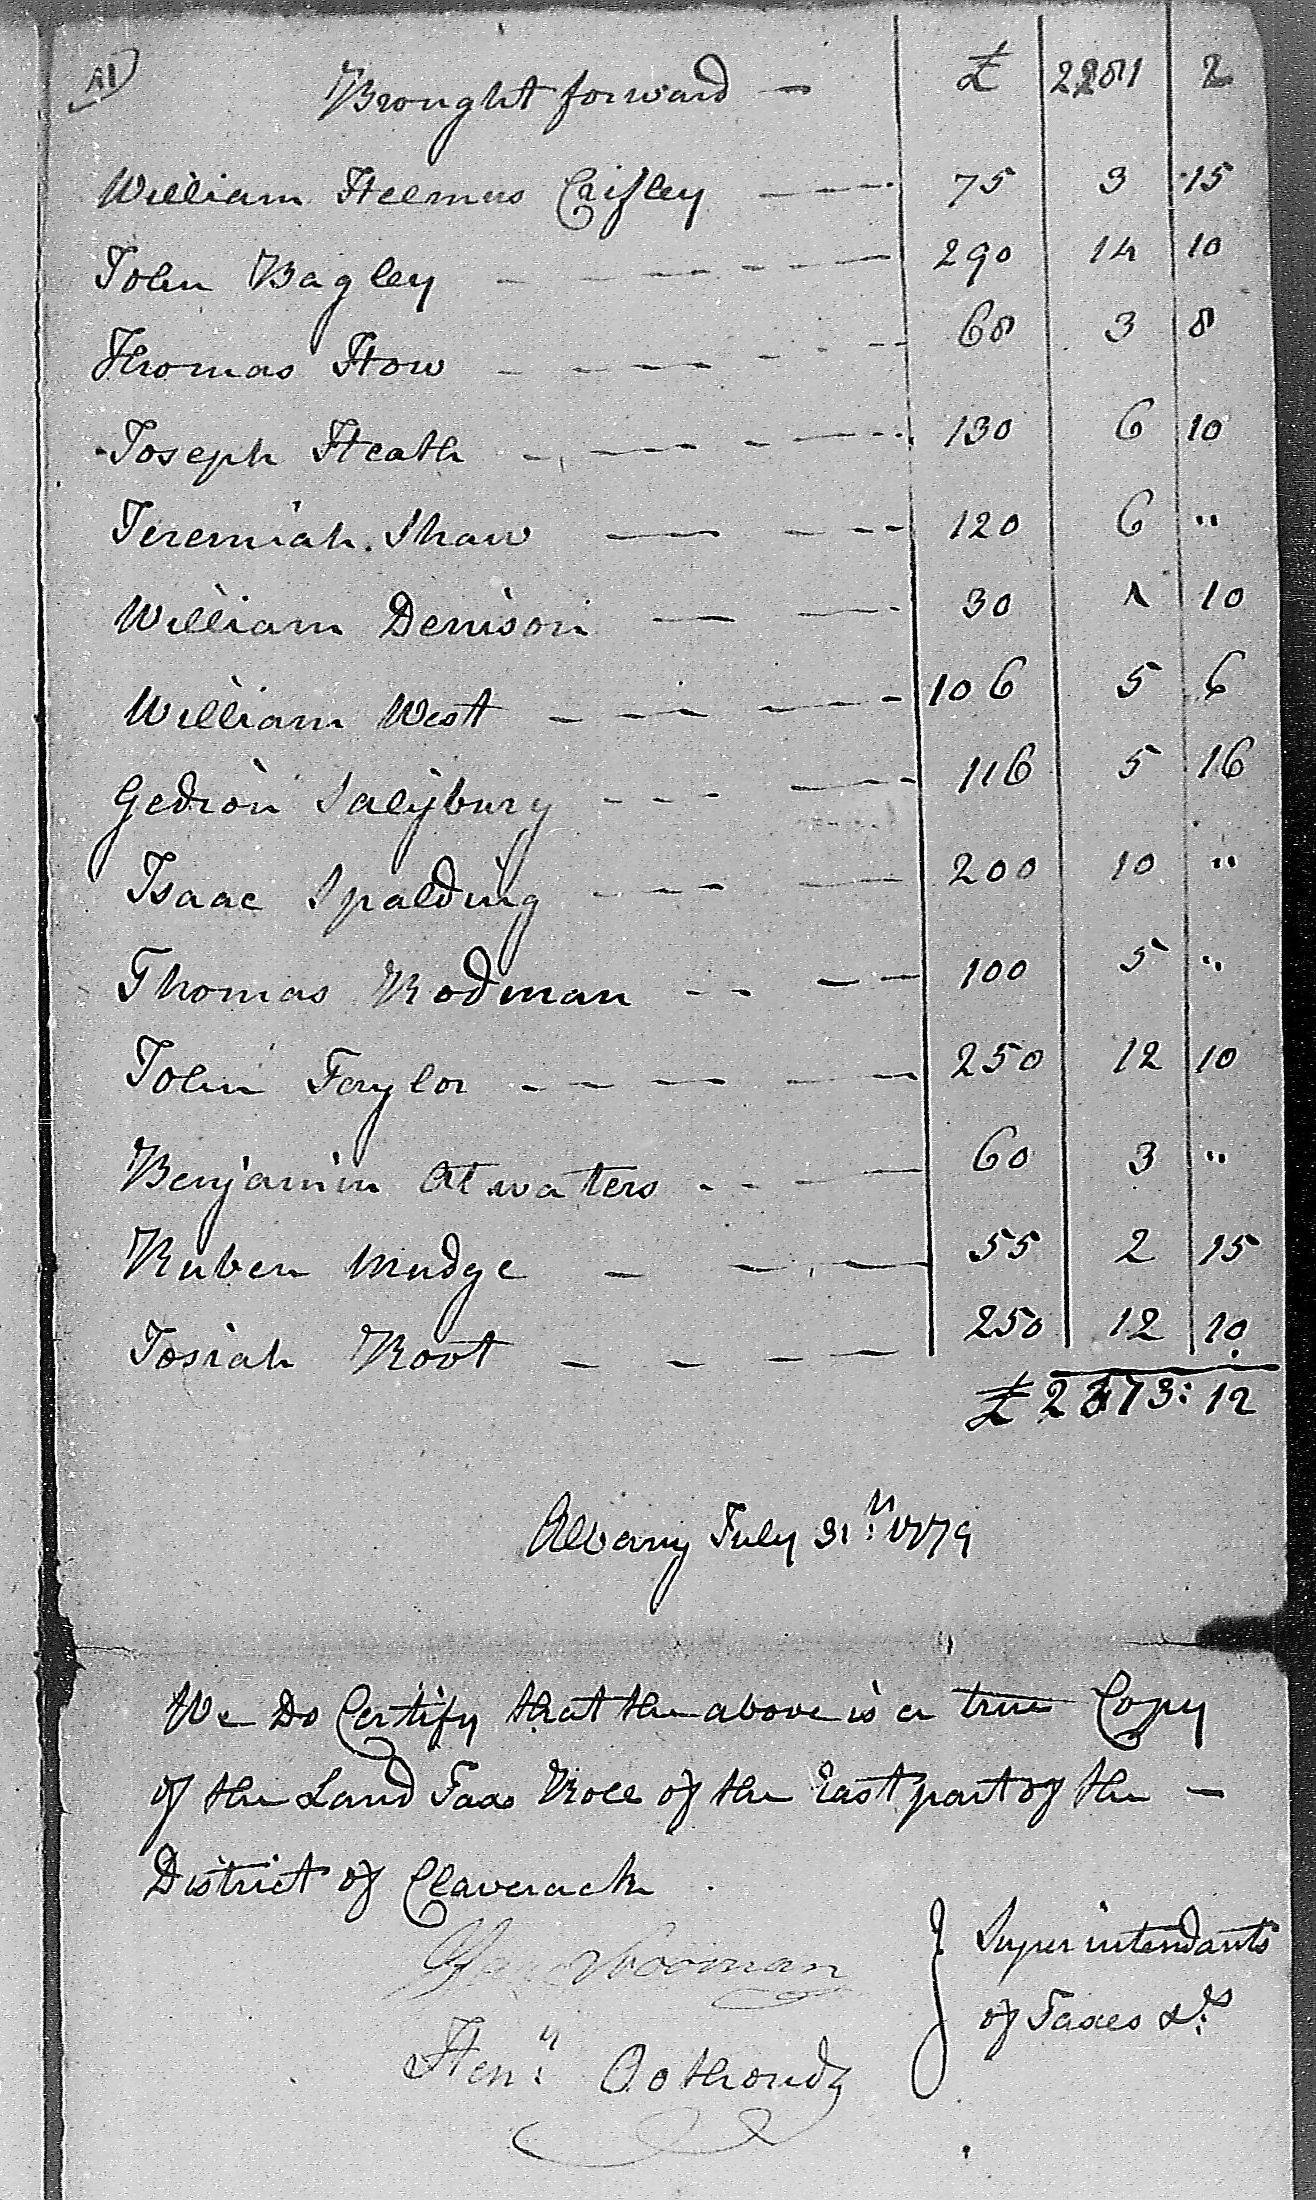 Brought forward — £ 2281 2
William Helmus Crisley — 75 3 15
John Bagley — 290 14 10
Thomas How — 68 3 8
Joseph Heath — 130 6 10
Jeremiah Shaw — 120 6 "
William Denison — 30 1 10
William West — 106 5 6
Gedion Salisbury — 116 5 16
Isaac Spalding — 200 10 "
Thomas Rodman — 100 5 "
John Taylor — 250 12 10
Benjamin Atwaters — 60 3 "
Ruben Mudge — 55 2 15
Josiah Root — 250 12 10
£ 2373: 12
Albany July 31st: 1779
We Do Certify that the above is a true Copy
of the Land Taxs Role of the East part of the —
District of Claverack
Superintendants
Vrooman
of Taxes &c
Heny: Oothoudt